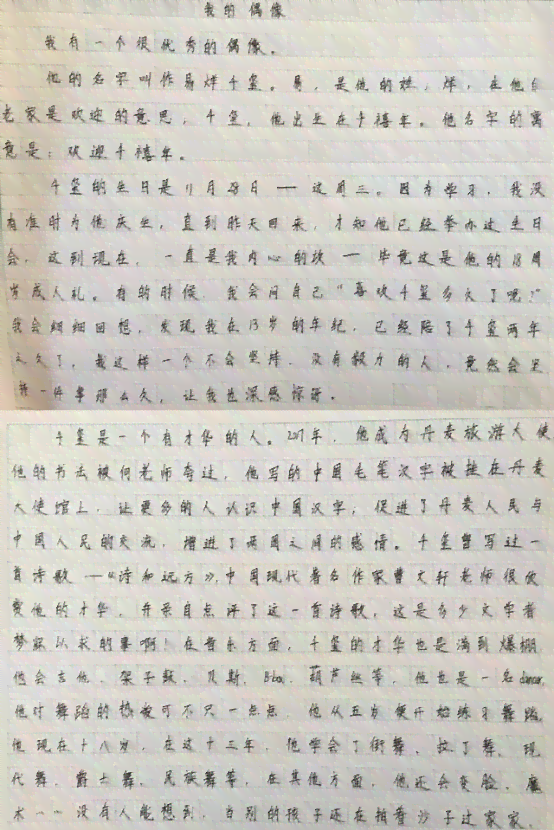 我的偶像
我有一个很优秀的偶像。
他的名字叫作易烊千玺。易,是他的姓,烊,在他们
老家是欢迎的意思,千玺,他出生在千禧年。他名字的寓
意是:欢迎千禧年。
千玺的生日是11月28日——这周三。因为学习,我没
有准时为他庆生,直到昨天回来,才知他已经举办过生日
会。这到现在,一直是我内心的坎——毕竟这是他的18周
岁成人礼。有的时候,我会问自己“喜欢千玺多久了呢?”
我会细细回想,发现我在13岁的年纪,已经陪了千玺两年
之久了,我这样一个不会坚持,没有毅力的人,竟然会坚
持一件事那么久,让我也深感惊讶。
千玺是一个有才华的人。2017年,他成为丹麦旅游大使
他的书法被何老师夸过,他写的中国毛笔汉字被挂在丹麦
大使馆上,让更多的人认识中国汉字,促进了丹麦人民与
中国人民的交流,增进了两国之间的感情。千玺曾写过一
首诗歌——《诗和远方》,中国现代著名作家曹文轩老师很欣
赏他的才华,并亲自点评了这一首诗歌,这是多少文学者
梦寐以求的事啊!在音乐方面,千玺的才华也是满到爆棚
他会吉他、架子鼓、贝斯、Bbox、葫芦丝等,他也是一名dancer,
他对舞蹈的热爱可不只一点点,他从五岁便开始练习舞蹈,
他现在十八岁,在这十三年,他学会了街舞、拉丁舞、现
代舞、爵士舞、民族舞等,在其他方面,他还会变脸、魔
术……没有人能想到,当别的孩子还在拍着沙子过家家,